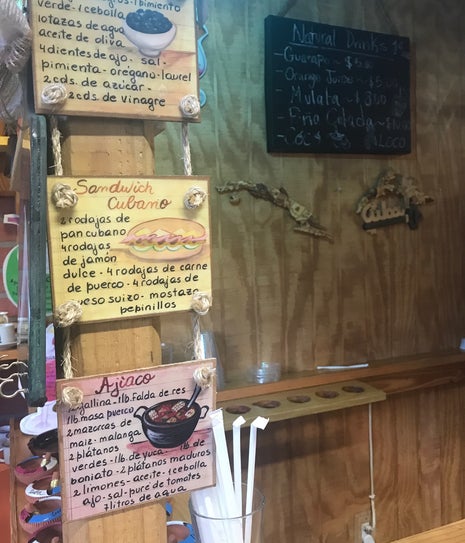 verde - 1 cebolla
10 tazas de agua
aceite de oliva
4 dientes de ajo - sal -
pimienta - oregano - laurel
2 cds. de azúcar -
2 cds. de vinagre
Sandwich
Cubano
2 rodajas de
pan cubano
4 rodajas
de jamón
dulce - 4 rodajas de carne
de puerco - 4 rodajas de
queso suizo - mostaza
pepinillos
Ajiaco
gallina - 1 lb. Falda de res
1 lb. masa puerco
2 mazorcas de
maiz - malanga
2 plátanos
verdes - 1 lb. de yuca - 1 lb.
boniato - 2 plátanos maduros
2 limones - aceite - 1 cebolla
ajo - sal - puré de tomates
7 litros de agua
Natural Drinks
Guarapo ~ $5.00
Orange Juice ~ $5.00
Mulata ~ $
Piña Colada ~ $
Coc
LOCO
Cuba